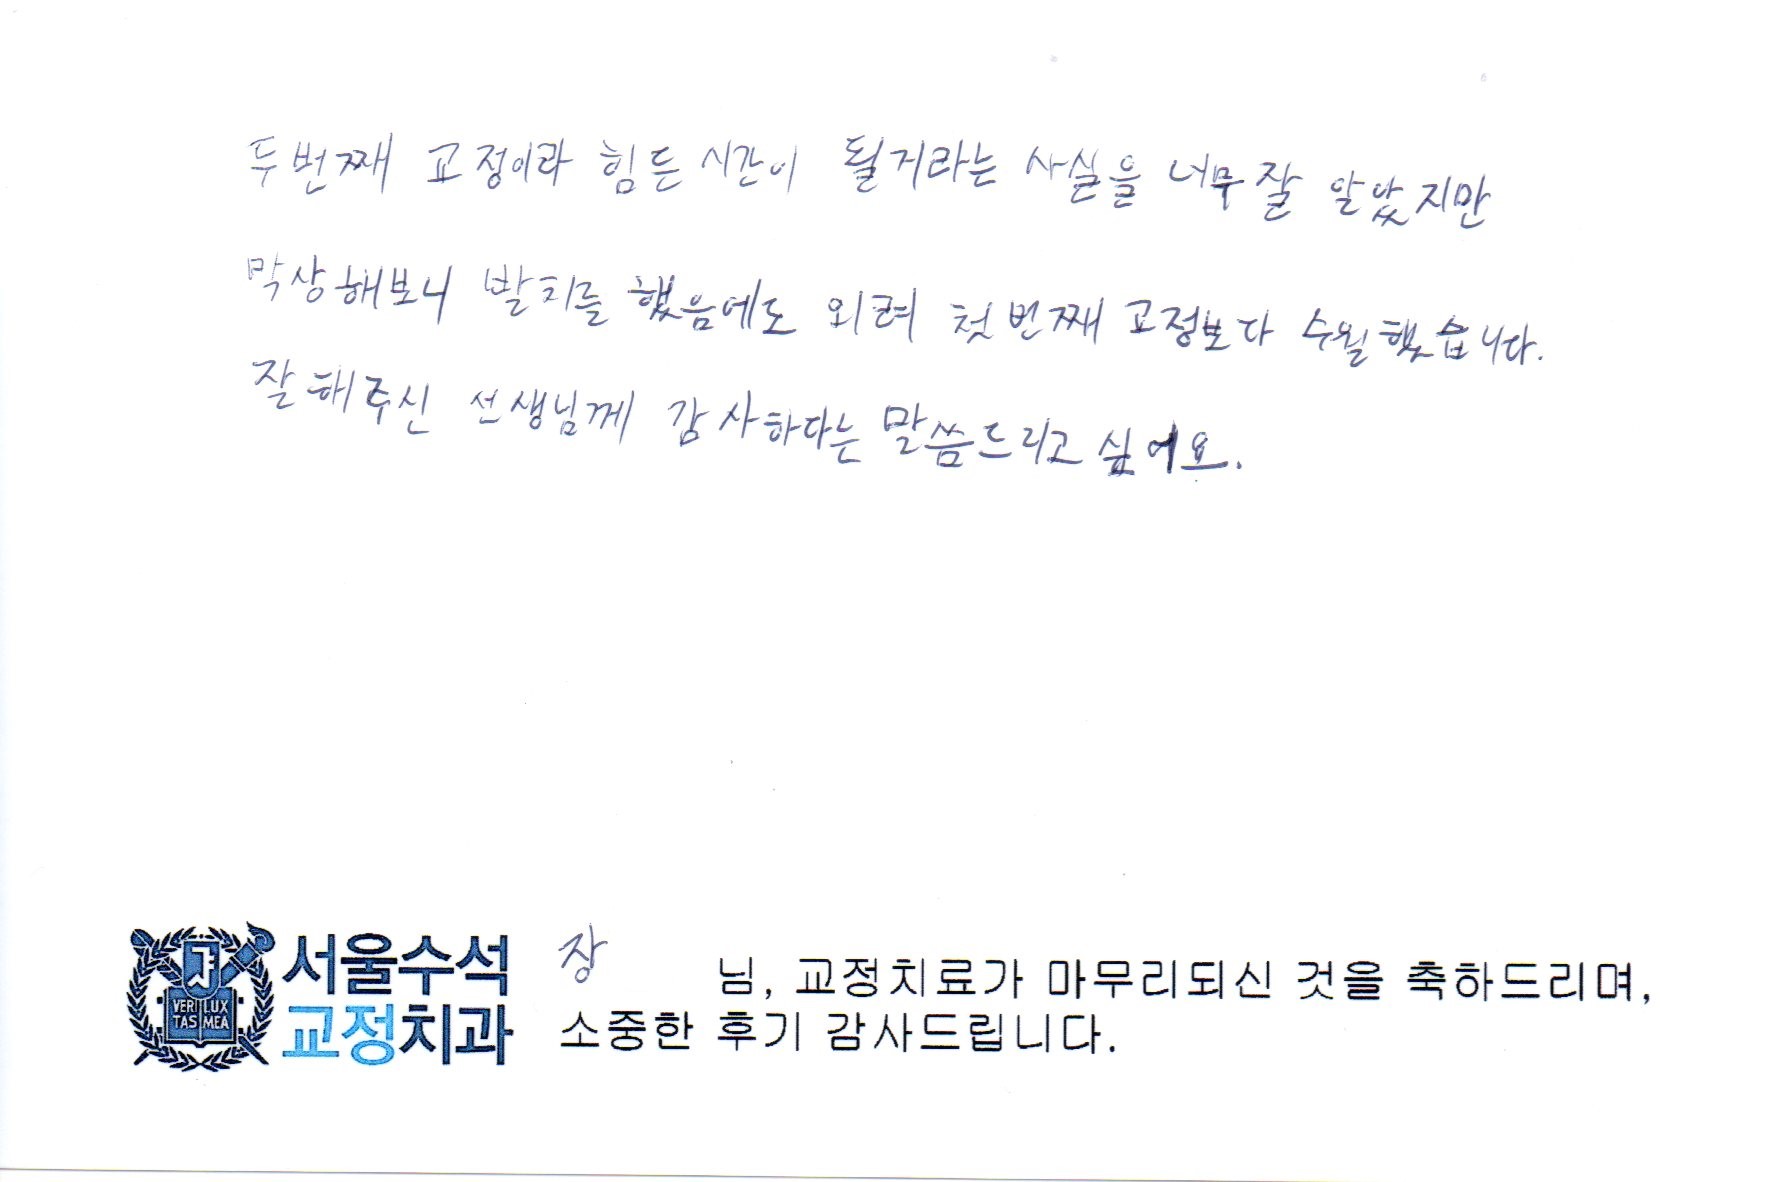 두번째 교정이라 힘든 시간이 될거라는 사실을 너무 잘 알았지만
막상해보니 발치를 했음에도 외려 첫번째 교정보다 수월했습니다.
잘해주신 선생님께 감사하다는 말씀드리고 싶어요.
서울수석
교정치과
VERI LUX
TAS MEA
장 님, 교정치료가 마무리되신 것을 축하드리며,
소중한 후기 감사드립니다.